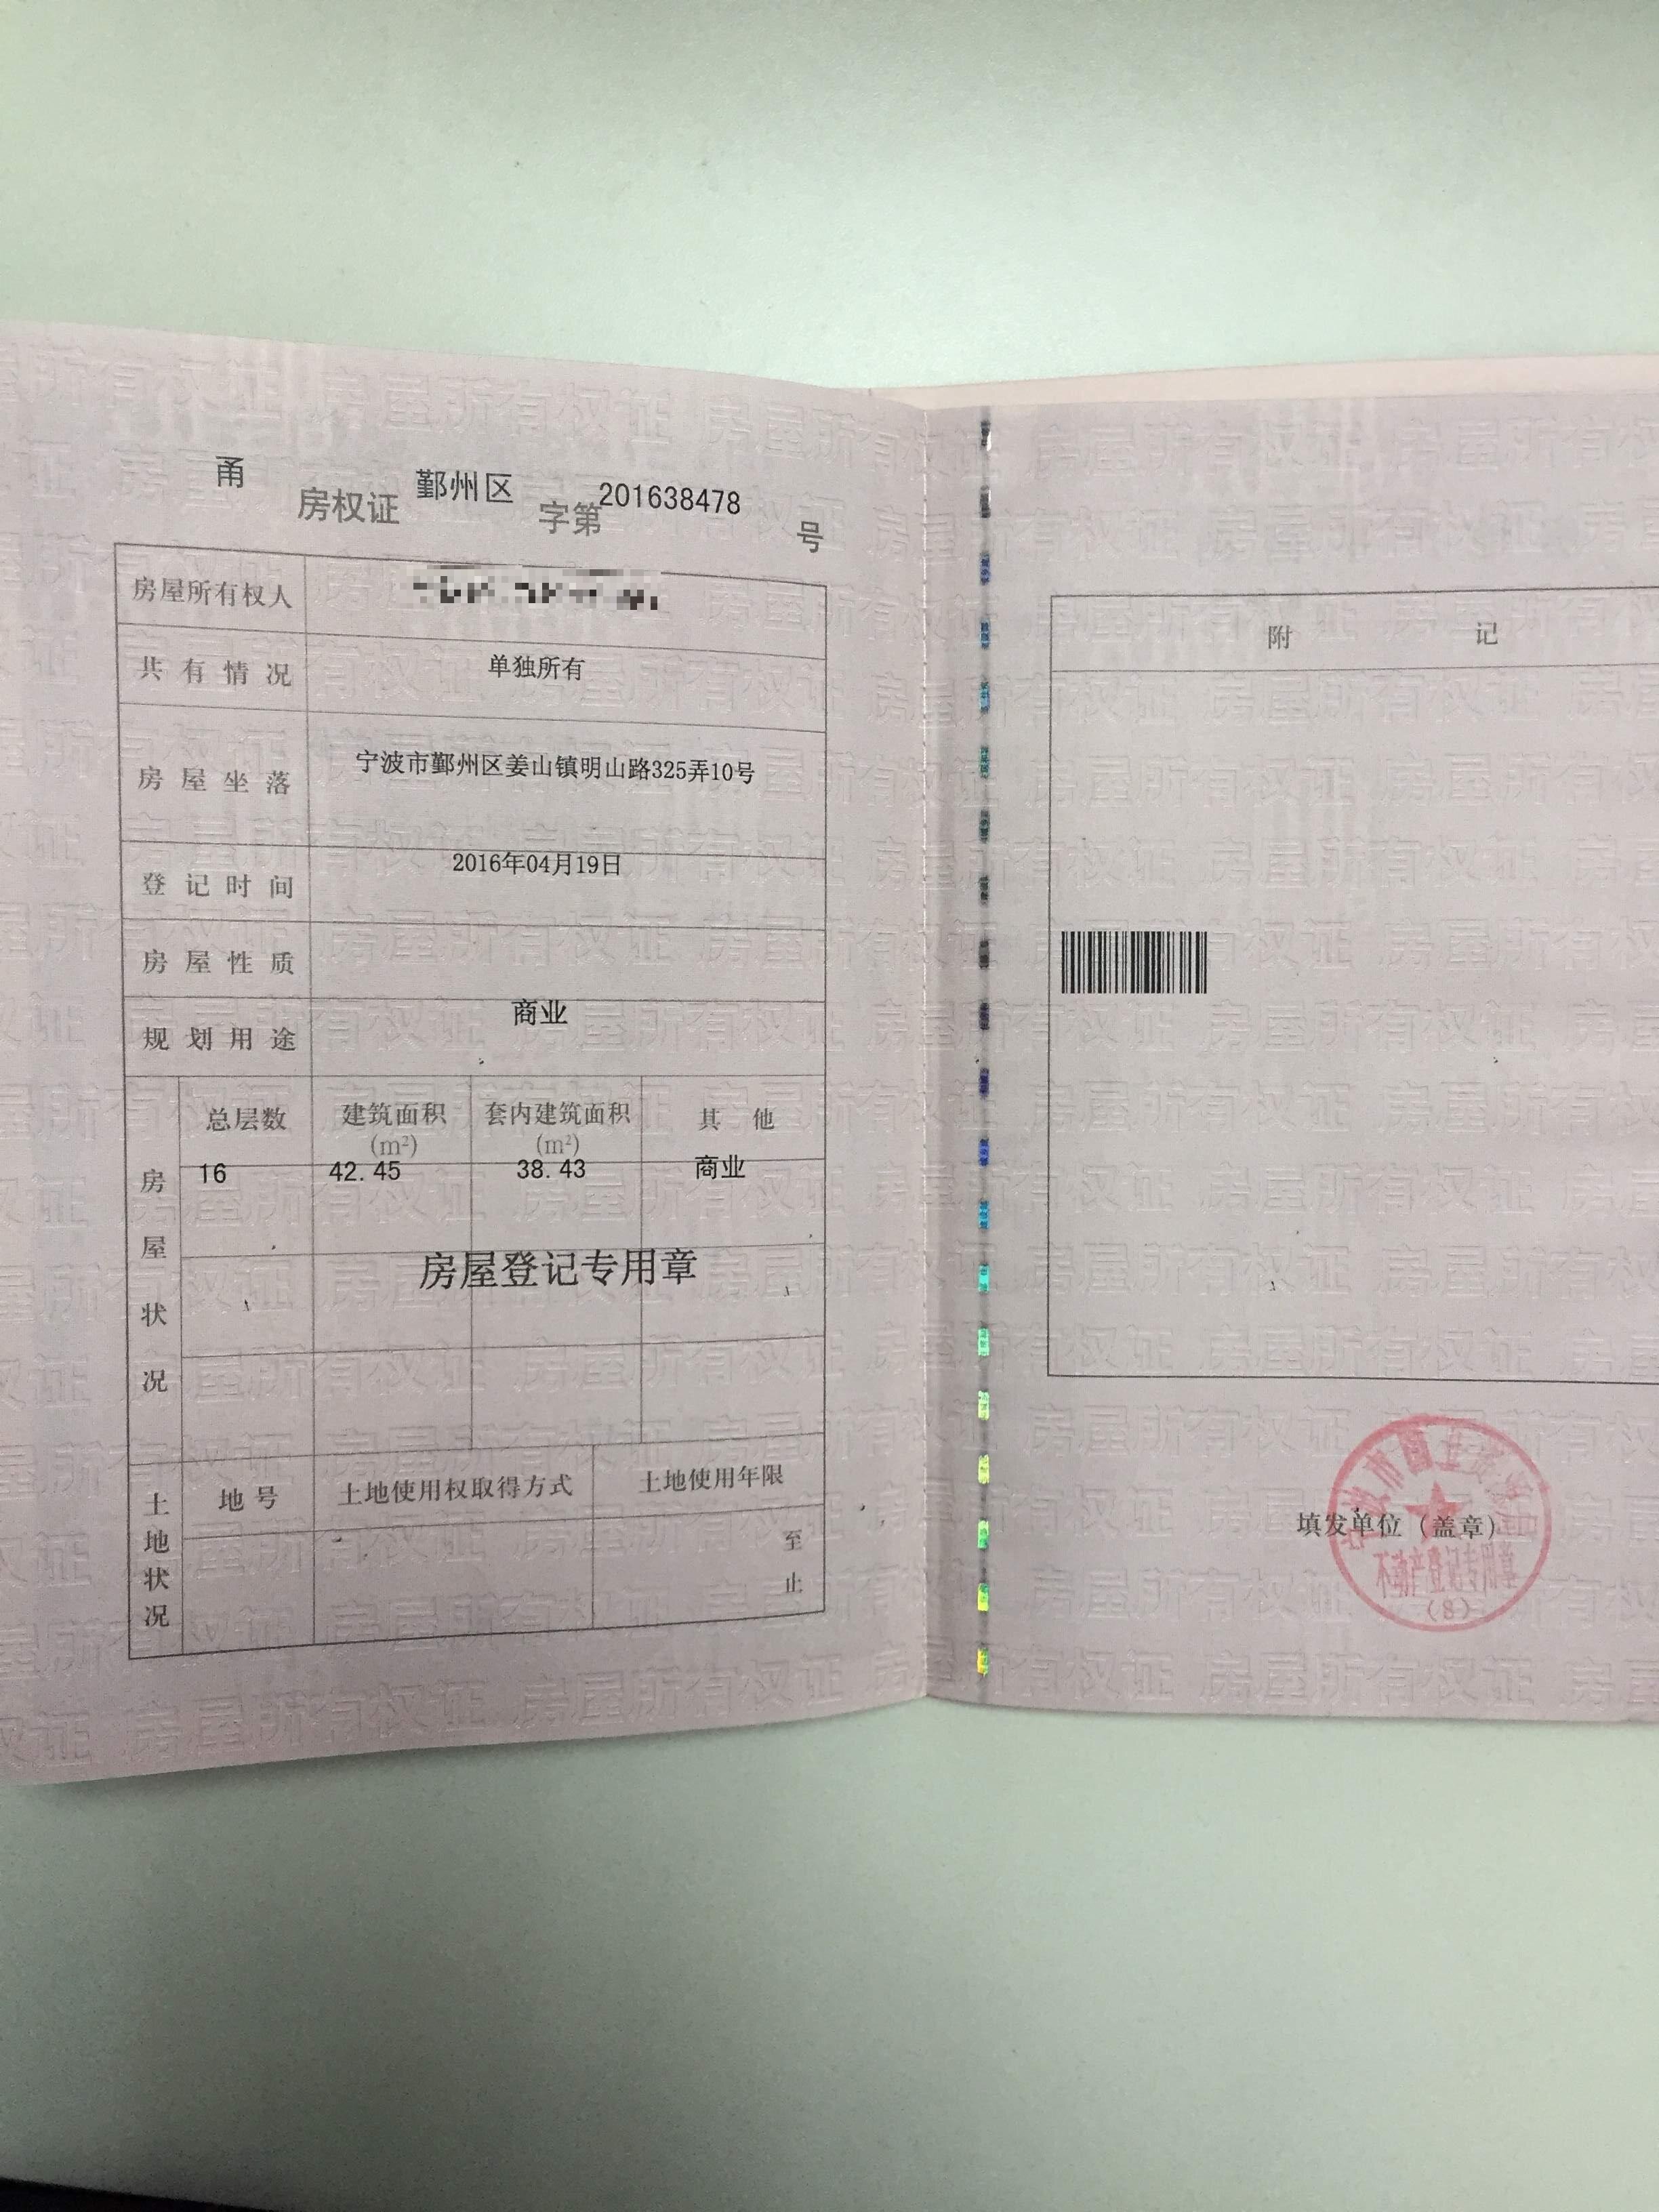 甬 房权证 鄞州区 字第 201638478 号
房屋所有权人
共有情况 单独所有
房屋坐落 宁波市鄞州区姜山镇明山路325弄10号
登记时间 2016年04月19日
房屋性质
规划用途 商业
房屋状况
总层数 建筑面积(m²) 套内建筑面积(m²) 其他
16 42.45 38.43 商业
房屋登记专用章
土地状况
地号 土地使用权取得方式 土地使用年限
至
止
附 记
填发单位（盖章）
不动产登记专用章
(8)
房屋所有权证